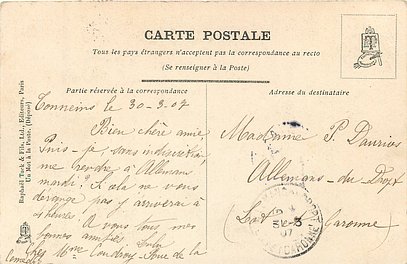 CARTE POSTALE
Tous les pays étrangers n'acceptent pas la correspondance au recto
(Se renseigner à la Poste)
Partie réservée à la correspondance
Adresse du destinataire
Raphaël Tuck & Fils, Ltd., Editeurs, Paris
Un Mot à la Poste. (Déposé)
Tonneins le 30-3-07
Bien chère amie,
Puis-je, sans indiscrétion,
me rendre à Allemans
mardi? Si cela ne vous
dérange pas j'y arriverai à
heures!
A vous tous, mes
bonnes amitiés
Mme
rue de la
Madame P. Dauriac
Allemans-du-Dropt
Lot & Garonne